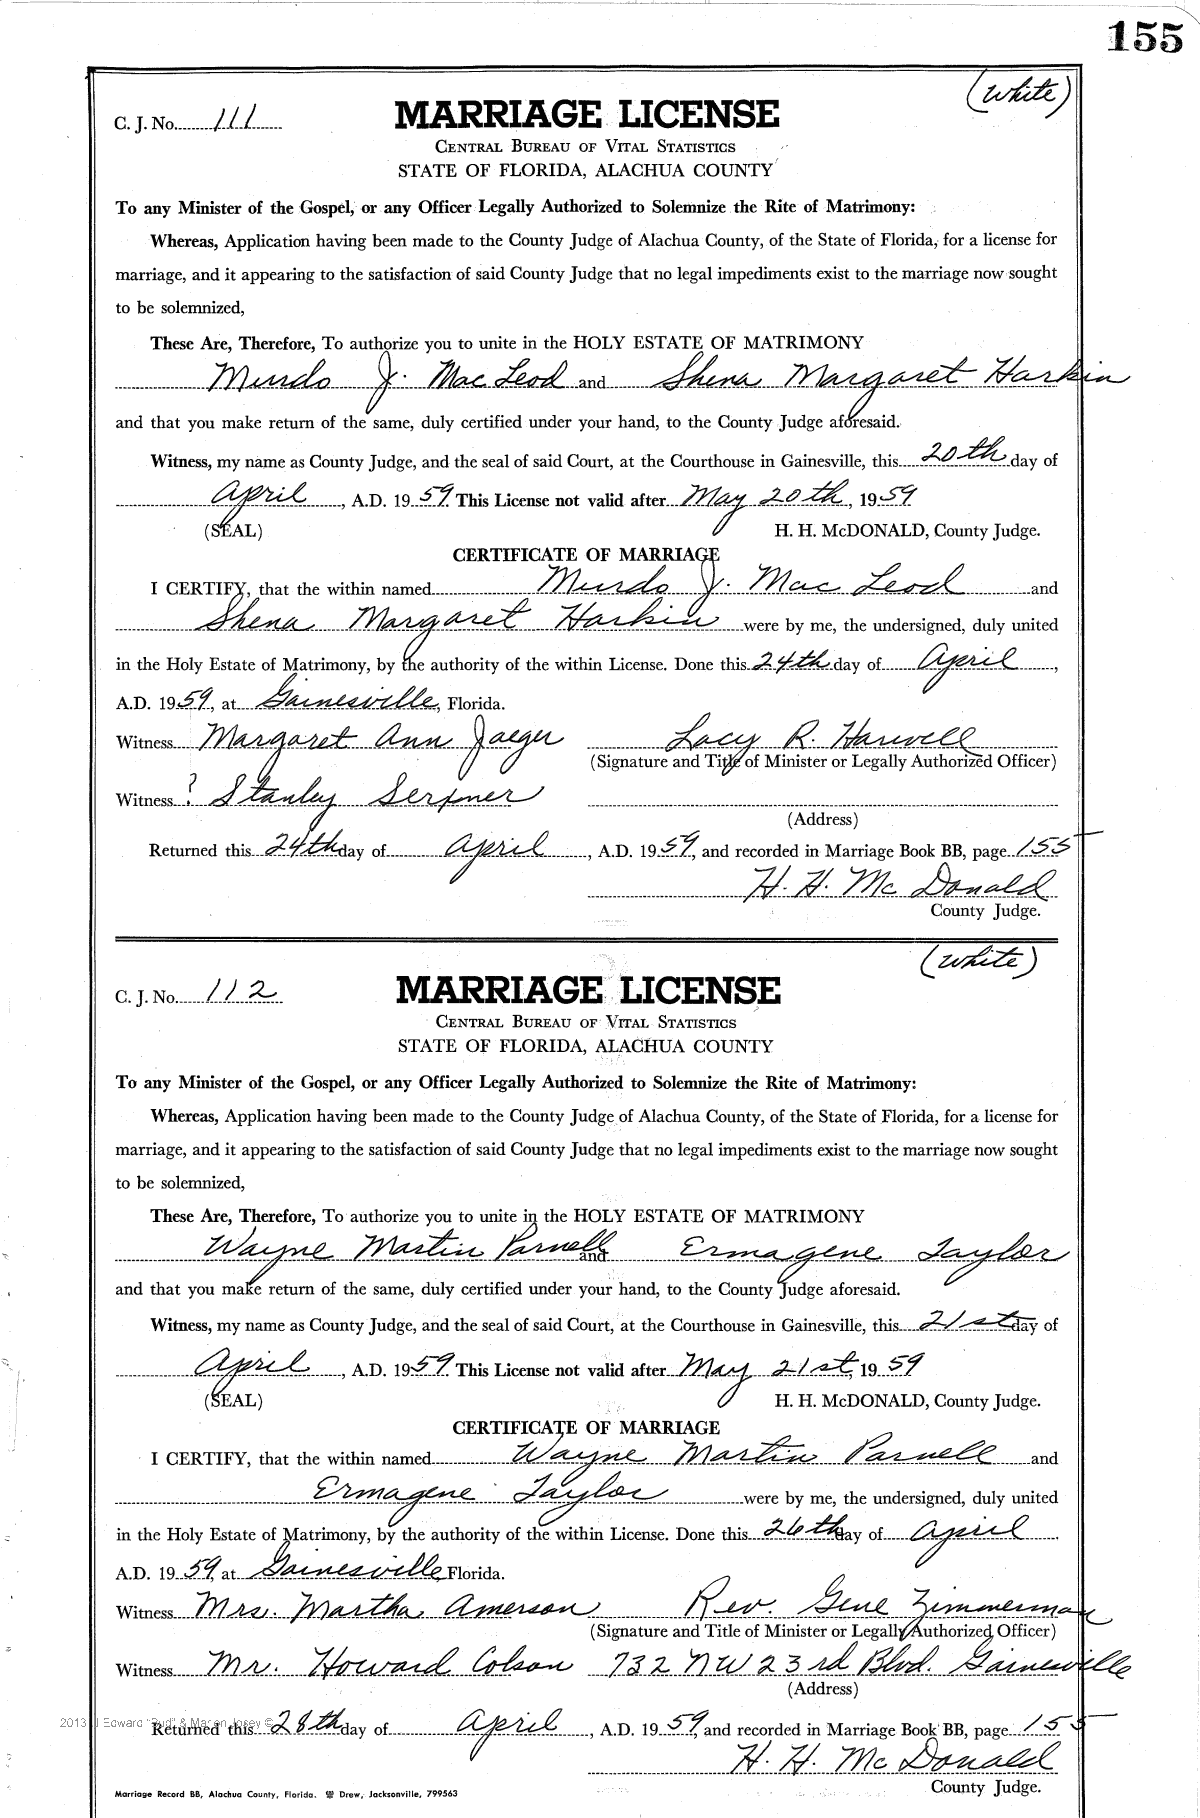 155
(White)
C. J. No. 111
MARRIAGE LICENSE
CENTRAL BUREAU OF VITAL STATISTICS
STATE OF FLORIDA, ALACHUA COUNTY
To any Minister of the Gospel, or any Officer Legally Authorized to Solemnize the Rite of Matrimony:
Whereas, Application having been made to the County Judge of Alachua County, of the State of Florida, for a license for
marriage, and it appearing to the satisfaction of said County Judge that no legal impediments exist to the marriage now sought
to be solemnized,
These Are, Therefore, To authorize you to unite in the HOLY ESTATE OF MATRIMONY
Murdo J. MacLeod and Shena Margaret Harkin
and that you make return of the same, duly certified under your hand, to the County Judge aforesaid.
Witness, my name as County Judge, and the seal of said Court, at the Courthouse in Gainesville, this 20th day of
April, A.D. 1959. This License not valid after May 20th, 1959
(SEAL) H. H. McDONALD, County Judge.
CERTIFICATE OF MARRIAGE
I CERTIFY, that the within named Murdo J. Mac Leod and
Shena Margaret Harkin were by me, the undersigned, duly united
in the Holy Estate of Matrimony, by the authority of the within License. Done this 24th day of April,
A.D. 1959, at Gainesville, Florida.
Witness Margaret Ann Jaeger Lacy R. Harwell
(Signature and Title of Minister or Legally Authorized Officer)
Witness ? Stanley Serxner
(Address)
Returned this 24th day of April, A.D. 1959, and recorded in Marriage Book BB, page 155
H. H. McDonald
County Judge.
(White)
C. J. No. 112
MARRIAGE LICENSE
CENTRAL BUREAU OF VITAL STATISTICS
STATE OF FLORIDA, ALACHUA COUNTY
To any Minister of the Gospel, or any Officer Legally Authorized to Solemnize the Rite of Matrimony:
Whereas, Application having been made to the County Judge of Alachua County, of the State of Florida, for a license for
marriage, and it appearing to the satisfaction of said County Judge that no legal impediments exist to the marriage now sought
to be solemnized,
These Are, Therefore, To authorize you to unite in the HOLY ESTATE OF MATRIMONY
Wayne Martin Parnell and Ermagene Taylor
and that you make return of the same, duly certified under your hand, to the County Judge aforesaid.
Witness, my name as County Judge, and the seal of said Court, at the Courthouse in Gainesville, this 21st day of
April, A.D. 1959. This License not valid after May 21st, 1959
(SEAL) H. H. McDONALD, County Judge.
CERTIFICATE OF MARRIAGE
I CERTIFY, that the within named Wayne Martin Parnell and
Ermagene Taylor were by me, the undersigned, duly united
in the Holy Estate of Matrimony, by the authority of the within License. Done this 26th day of April
A.D. 1959, at Gainesville, Florida.
Witness Mrs. Martha Amerson Rev. Gene Zimmerman
(Signature and Title of Minister or Legally Authorized Officer)
Witness Mr. Howard Colson 732 NW 23rd Blvd. Gainesville
(Address)
2013 J Edward "Bud" & Marion Josey ©
Returned this 28th day of April, A.D. 1959, and recorded in Marriage Book BB, page 155
H. H. McDonald
County Judge.
Marriage Record BB, Alachua County, Florida. Drew, Jacksonville, 799563